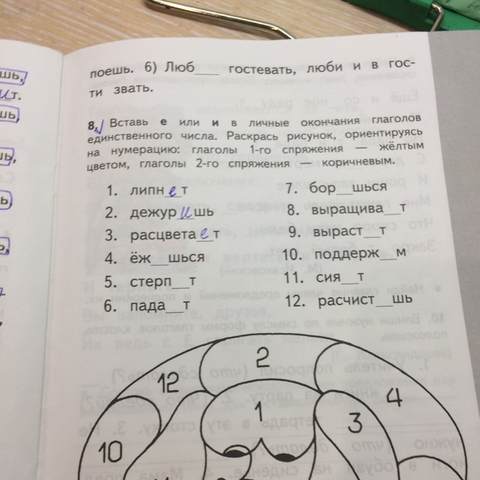 шь,
ит.
шь,
поешь. 6) Люб___ гостевать, люби и в гос-
ти звать.
8. Вставь е или и в личные окончания глаголов
единственного числа. Раскрась рисунок, ориентируясь
на нумерацию: глаголы 1-го спряжения — жёлтым
цветом, глаголы 2-го спряжения — коричневым.
1. липнет
2. дежуришь
3. расцветает
4. ёж__шься
5. стерп__т
6. пада__т
7. бор__шься
8. выращива__т
9. выраст__т
10. поддерж__м
11. сия__т
12. расчист__шь
2
12
4
1
3
10